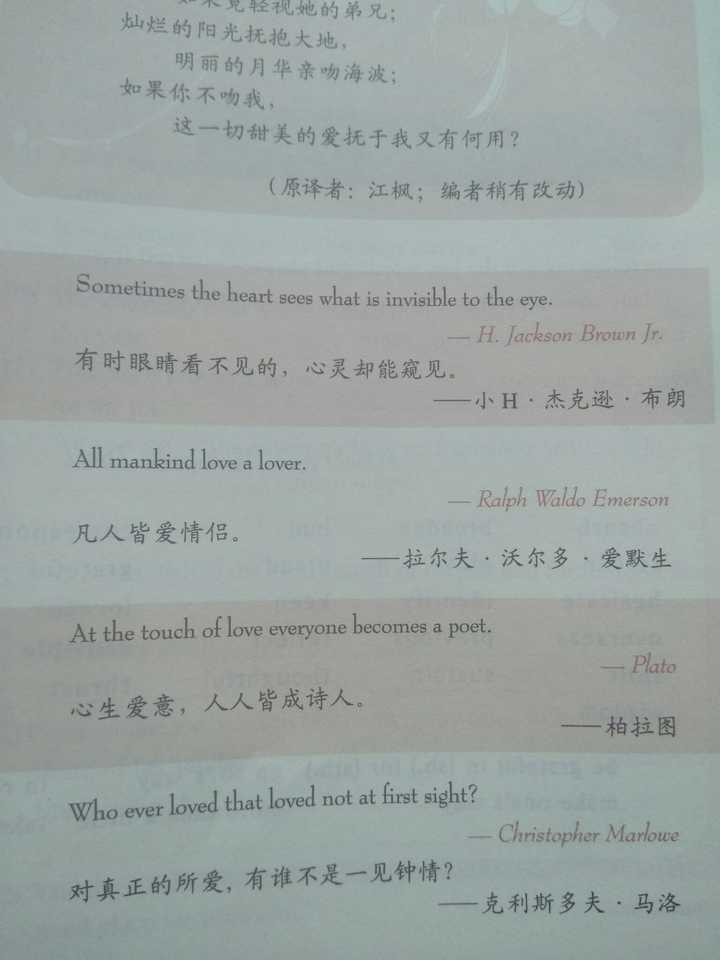 如果竟轻视她的弟兄；
灿烂的阳光抚抱大地，
明丽的月华亲吻海波；
如果你不吻我，
这一切甜美的爱抚于我又有何用？
（原译者：江枫；编者稍有改动）
Sometimes the heart sees what is invisible to the eye.
— H. Jackson Brown Jr.
有时眼睛看不见的，心灵却能窥见。
——小 H · 杰克逊 · 布朗
All mankind love a lover.
— Ralph Waldo Emerson
凡人皆爱情侣。
——拉尔夫 · 沃尔多 · 爱默生
At the touch of love everyone becomes a poet.
— Plato
心生爱意，人人皆成诗人。
——柏拉图
Who ever loved that loved not at first sight?
— Christopher Marlowe
对真正的所爱，有谁不是一见钟情？
——克利斯多夫 · 马洛